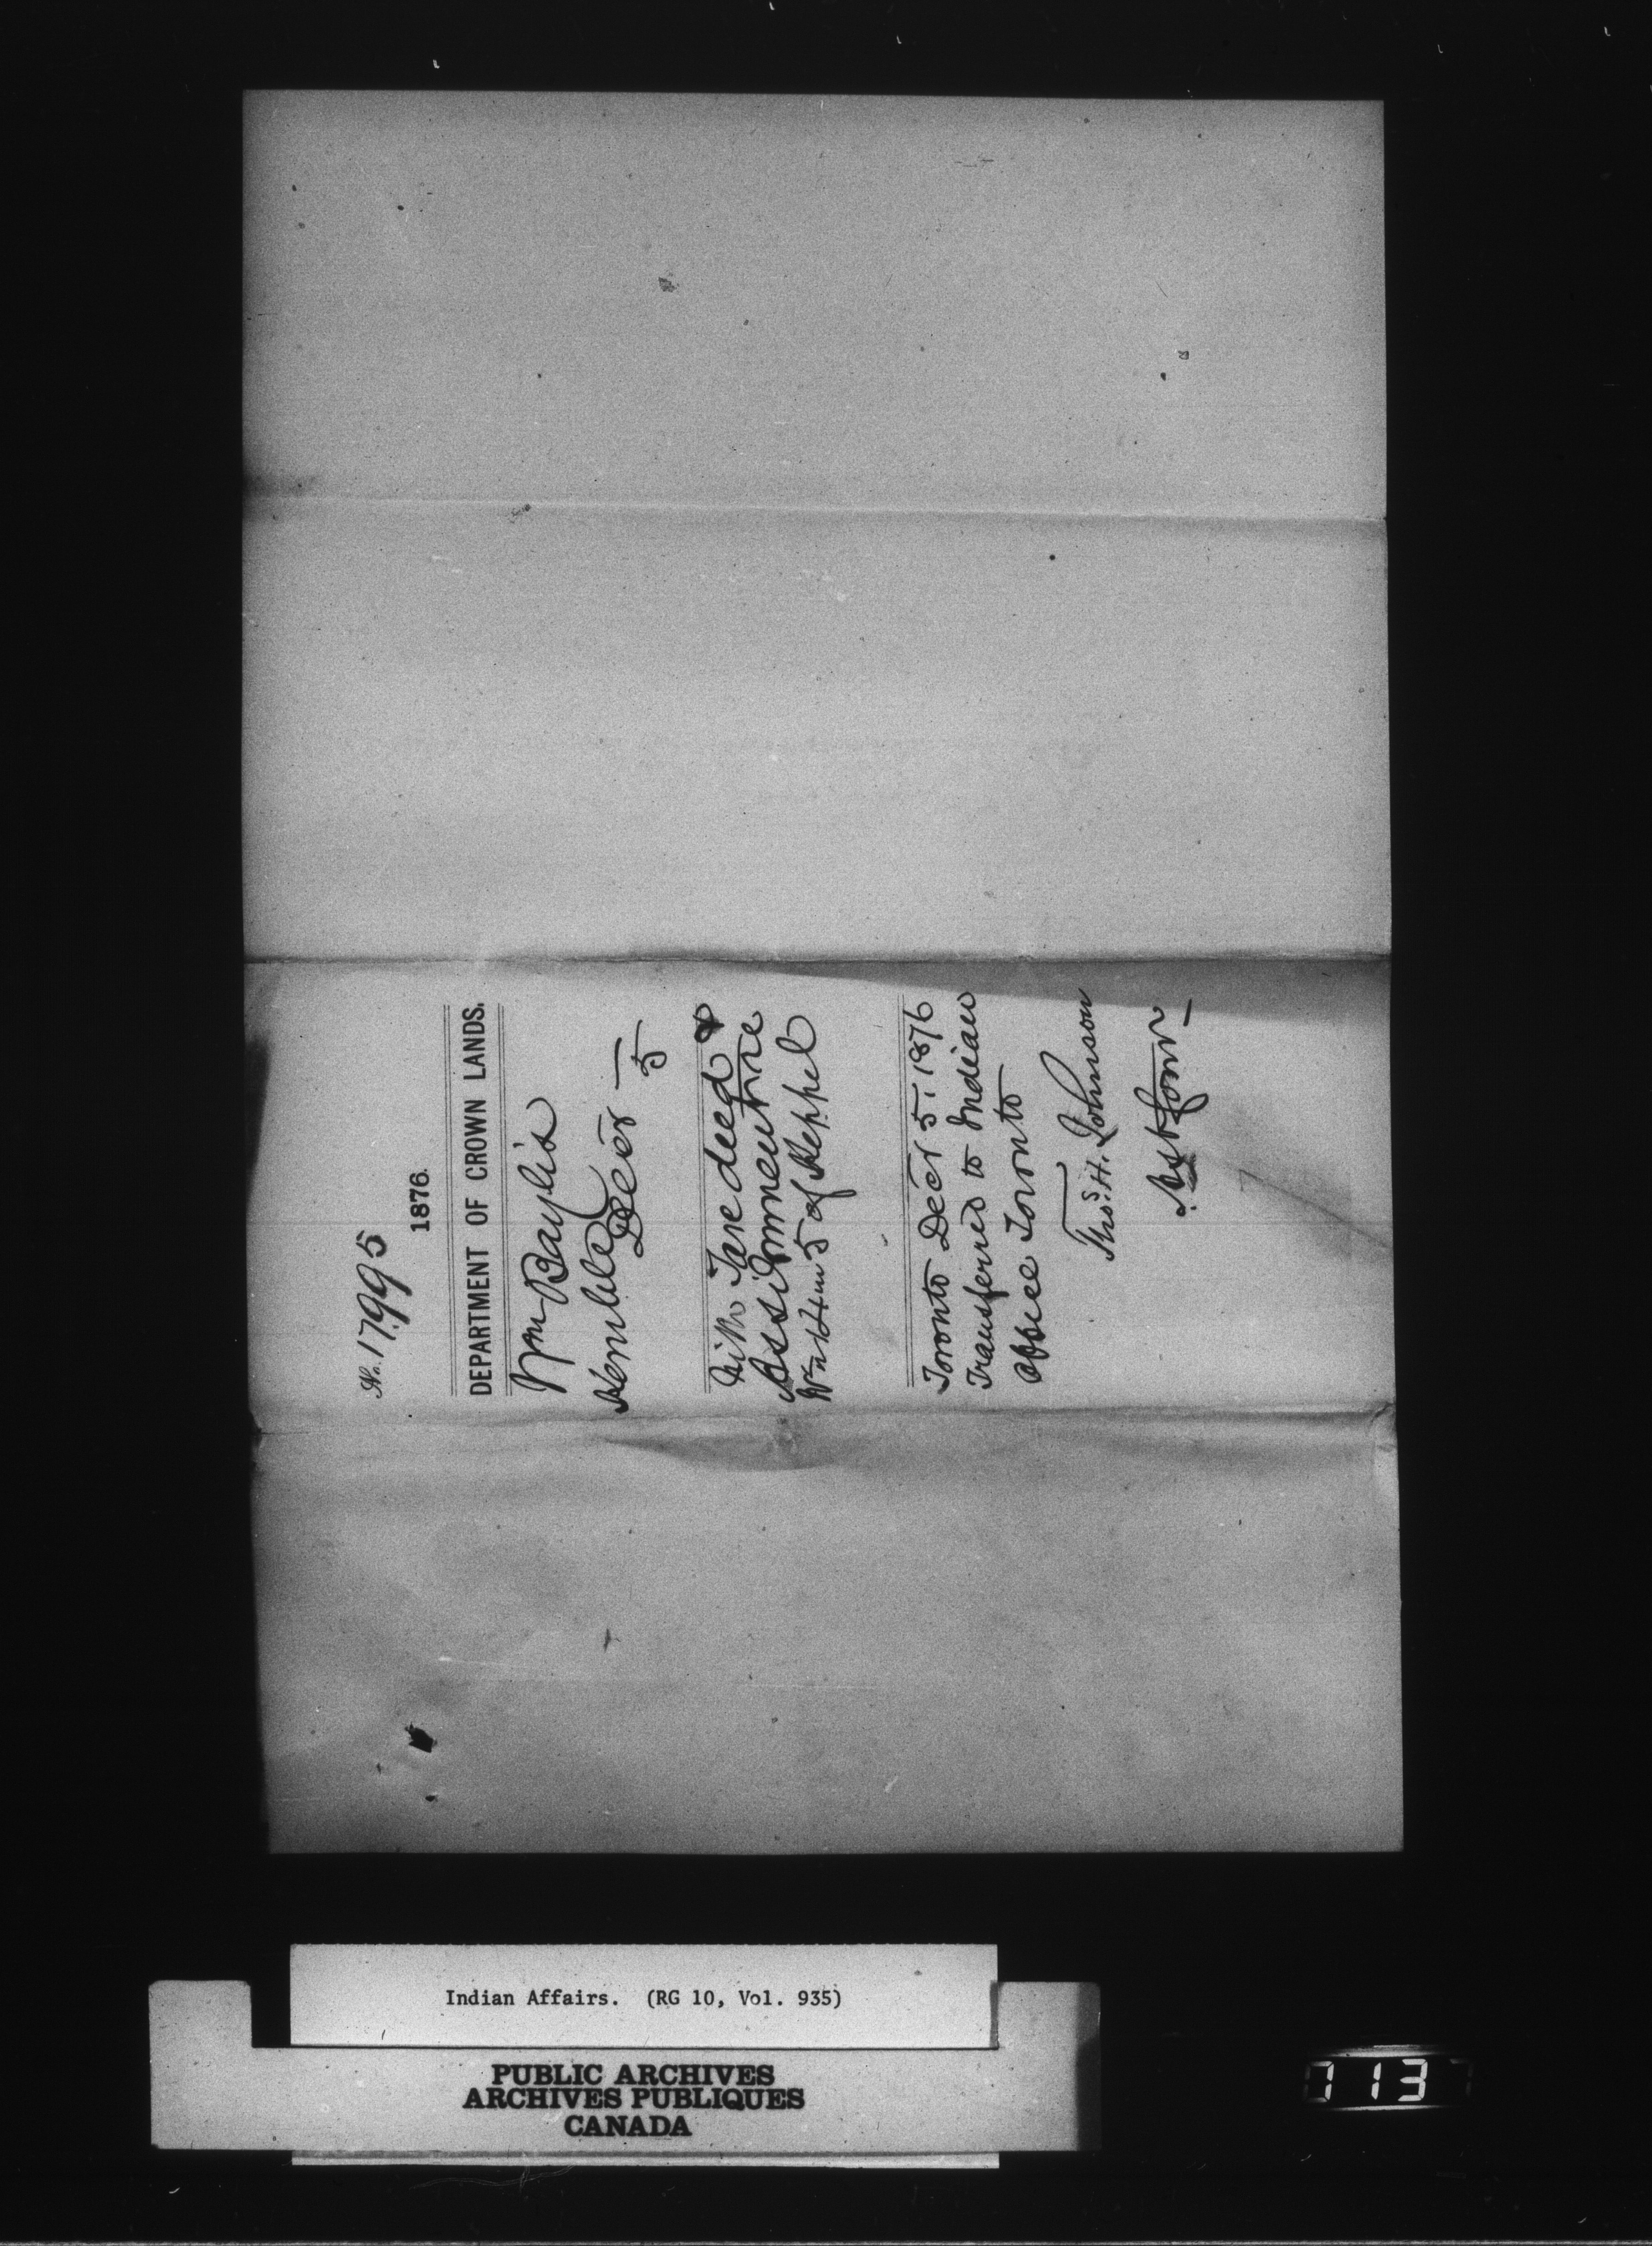 No. 17995
1876.
DEPARTMENT OF CROWN LANDS.
Wm Baylis
Kemble
Decer 5
With Tax deed &
Assignment re
5 of Keppel
Toronto Decr 5. 1876
Transferred to Indian
Office Toronto
Thos. H. Johnson
Asst Comr
Indian Affairs. (RG 10, Vol. 935)
PUBLIC ARCHIVES
ARCHIVES PUBLIQUES
CANADA
713